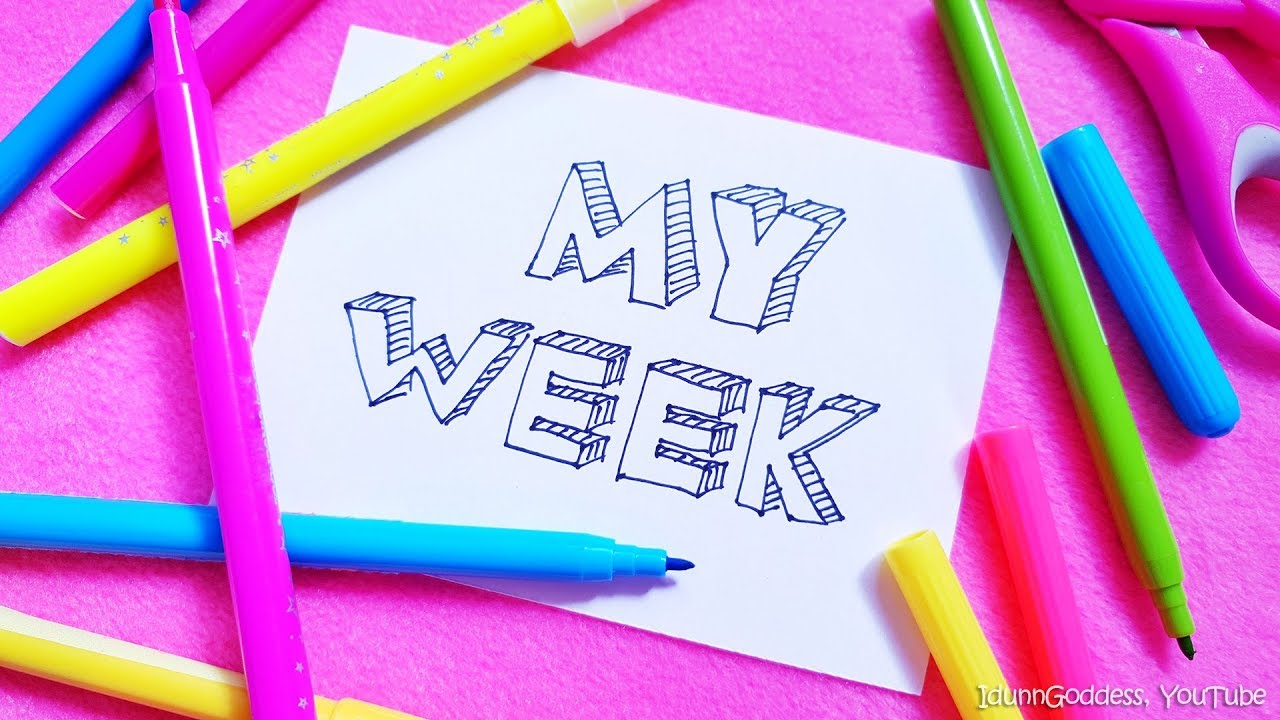 MY
WEEK
IdunnGoddess, YouTube